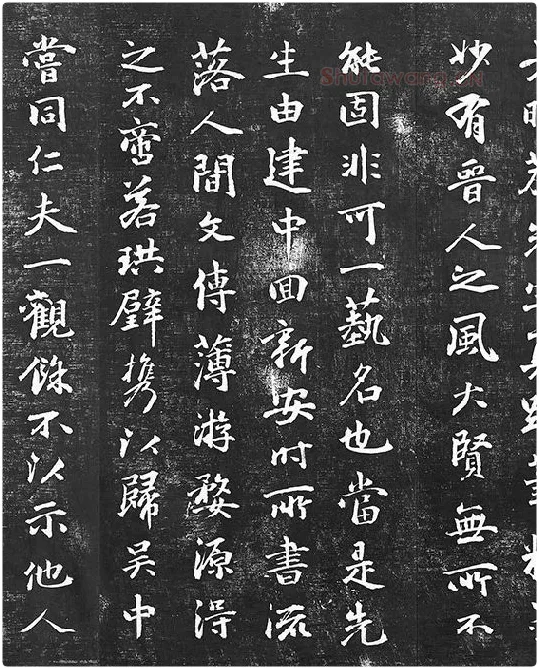 妙有晉人之風大賢無所不
能固非可一藝名也當是先
生由建中回新安時所書流
落人間文傳薄游婺源得
之不啻若珙璧携以歸吴中
嘗同仁夫一觀餘不以示他人